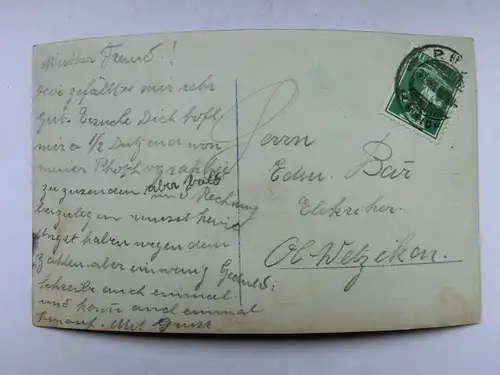 Werther Freund!
hier gefällt es mir sehr
gut. Ersuche Dich höfl.
mir a 1/2 Dutzend von
meiner Photographie
zuzusenden aber bald und Rechnung
beizulegen musst keine
Angst haben wegen dem
Zahlen aber ein wenig Geduld:
schreibe auch einmal
und komm auch einmal
hinauf. Mit Gruss
Herrn
Edm. Bär
Elektriker.
Ob. Wetzikon.